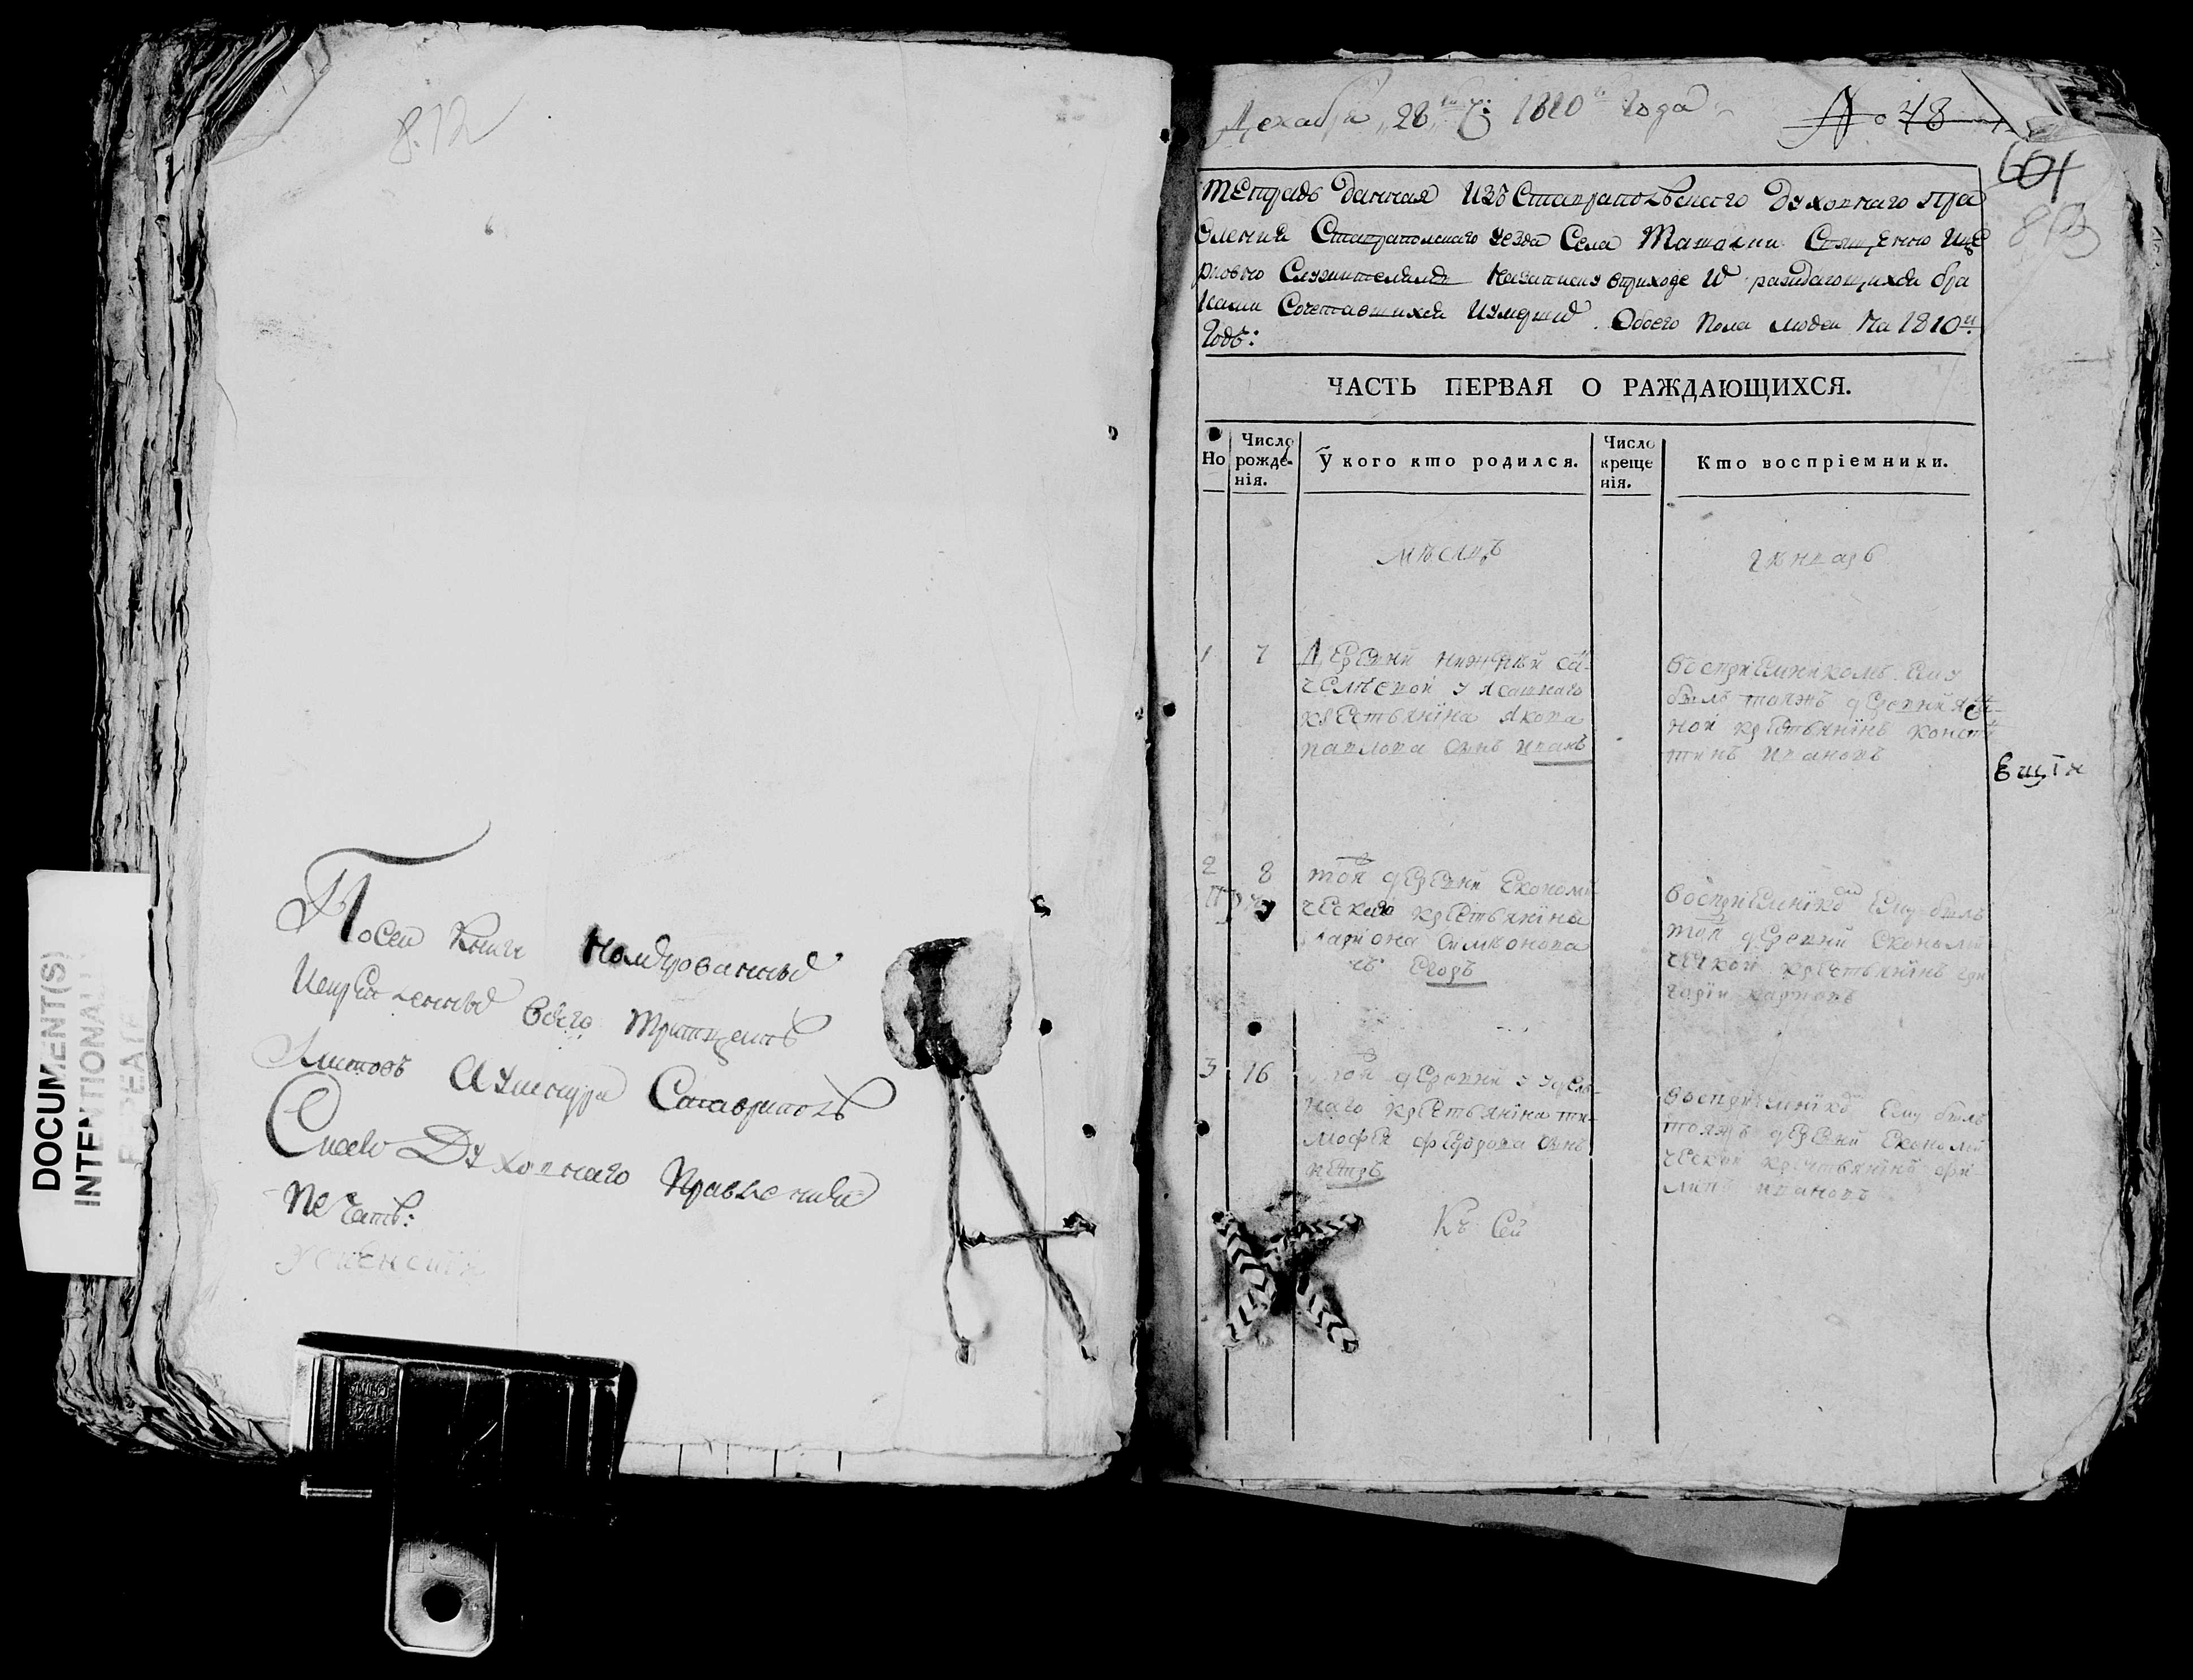 812
Посей Книги Номерованныхъ
Искрепленныхъ всего тритцеть
Листовъ Аушнура Ставрополь
Скаго Духовнаго Правления
печать:
Успенский
DOCUMENT(S)
INTENTIONAL
Декабря 28 Ч: 1810 года
№ 48
604
813
Тетрадь данная изъ Ставропольского духовнаго пра
вления Ставропольскаго уезда Села Ташолки Священно ице
рковно Служителямъ Назаписку вприходе W раждающихся бра
ками Сочетавшихся иумерших Обоего Пола людей На 1810й
Годъ:
ЧАСТЬ ПЕРВАЯ О РАЖДАЮЩИХСЯ.
Но
Число рожде-нія.
У кого кто родился.
Число креще нія.
Кто воспріемники.
мѣсяцъ
генварь
1
7
Деревни нижней са-
челѣевой у ясашнаго
крестьянина якова
павлова сынъ иванъ
воспріемникомъ ему
былъ тояжъ деревни яса-
ной крестьянинъ конста
тинъ ивановъ
2
8
той деревни економи
ческаго крестьянина
лариона симионова
нъ егоръ
воспріемнико ему былъ
той деревни економи
ческой крестьянинъ гри
горіи карповъ
3
16
той деревни у удель-
наго крестьянина ти-
мофея федорова сынъ
петръ
воспріемнико ему былъ
тояжъ деревни економи
ческой крестьянинъ фи
липъ ивановъ
Къ Сей